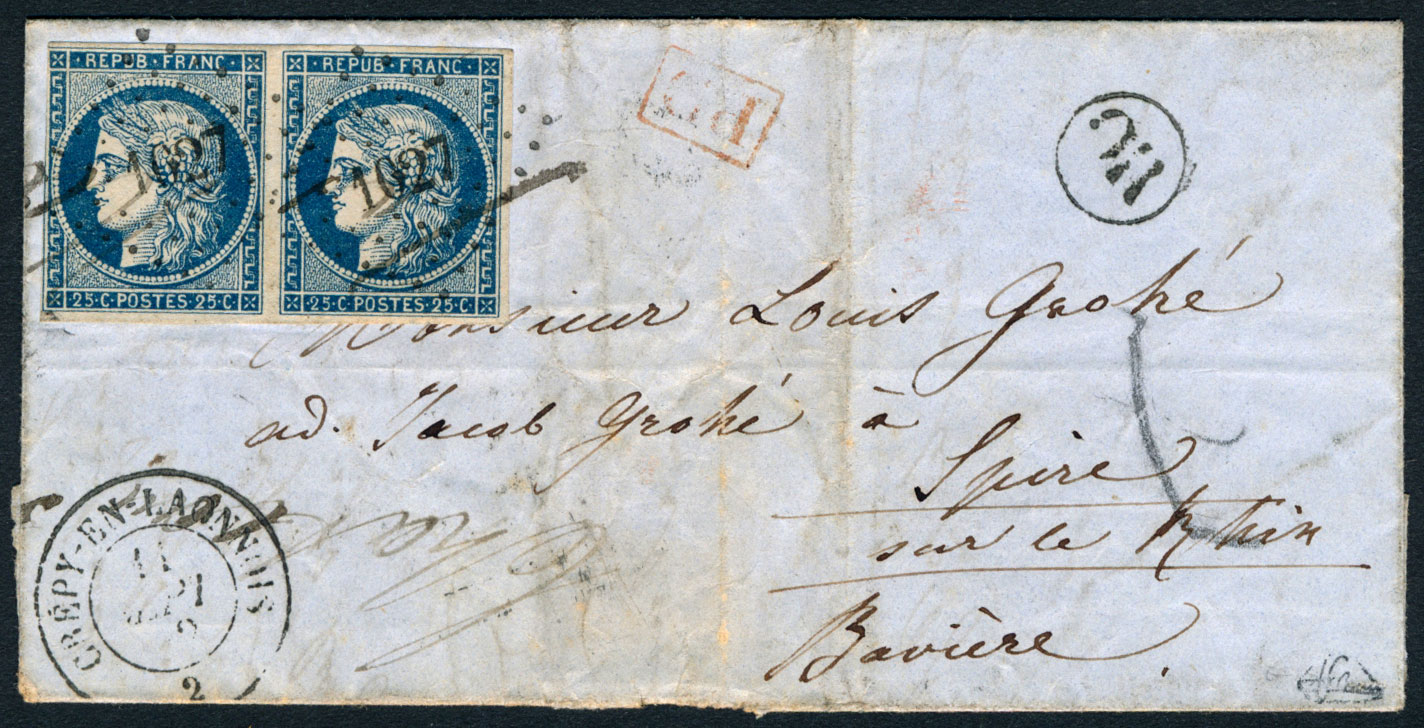 REPUB·FRANC· REPUB·FRANC·
1027 1027
25·C·POSTES·25·C 25·C·POSTES·25·C
P.D.
Monsieur Louis Grohé
ad. Jacob Grohé à
Spire
sur le Rhin
Bavière
CRÉPY-EN-LAONNOIS
11
2